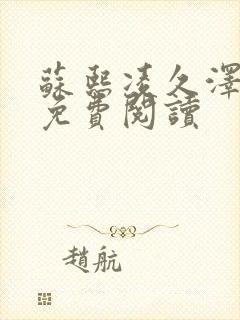 蘇熙凌久澤
免費閱讀
趙航